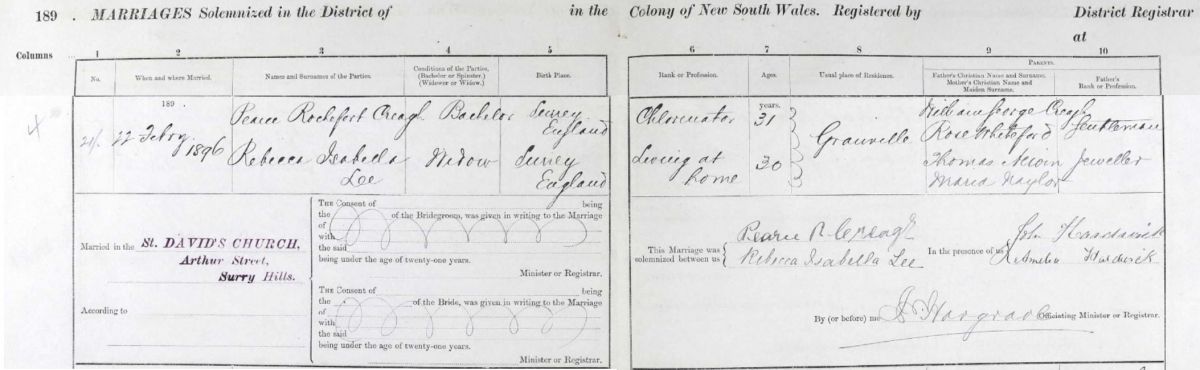 189 . MARRIAGES Solemnized in the District of in the Colony of New South Wales. Registered by District Registrar
at
Columns 1 2 3 4 5 6 7 8 9 10
No. When and where Married. Names and Surnames of the Parties. Conditions of the Parties. (Bachelor or Spinster.) (Widower or Widow.) Birth Place. Rank or Profession. Ages. Usual place of Residence. PARENTS. Father's Christian Name and Surname. Mother's Christian Name and Maiden Surname. Father's Rank or Profession.
189 years.
Pearce Rochefort Creagh Bachelor Surrey England Chlorinator 31 William George Creagh Gentleman
22 Febry 1896 Granville Rose Whiteford
Rebecca Isabella Lee Widow Surrey England Living at home 30 Thomas Jeweller
Maria Naylor
THE CONSENT OF being
the of the Bridegroom, was given in writing to the Marriage
of
with
the said
being under the age of twenty-one years.
Minister or Registrar.
Married in the St. DAVID'S CHURCH,
Arthur Street,
Surry Hills.
According to
THE CONSENT OF being
the of the Bride, was given in writing to the Marriage
of
with
the said
being under the age of twenty-one years.
Minister or Registrar.
This Marriage was solemnized between us
Pearce R. Creagh
Rebecca Isabella Lee
In the presence of us
John Hardwick
Amelia Hardwick
By (or before) me Hargrave Officiating Minister or Registrar.